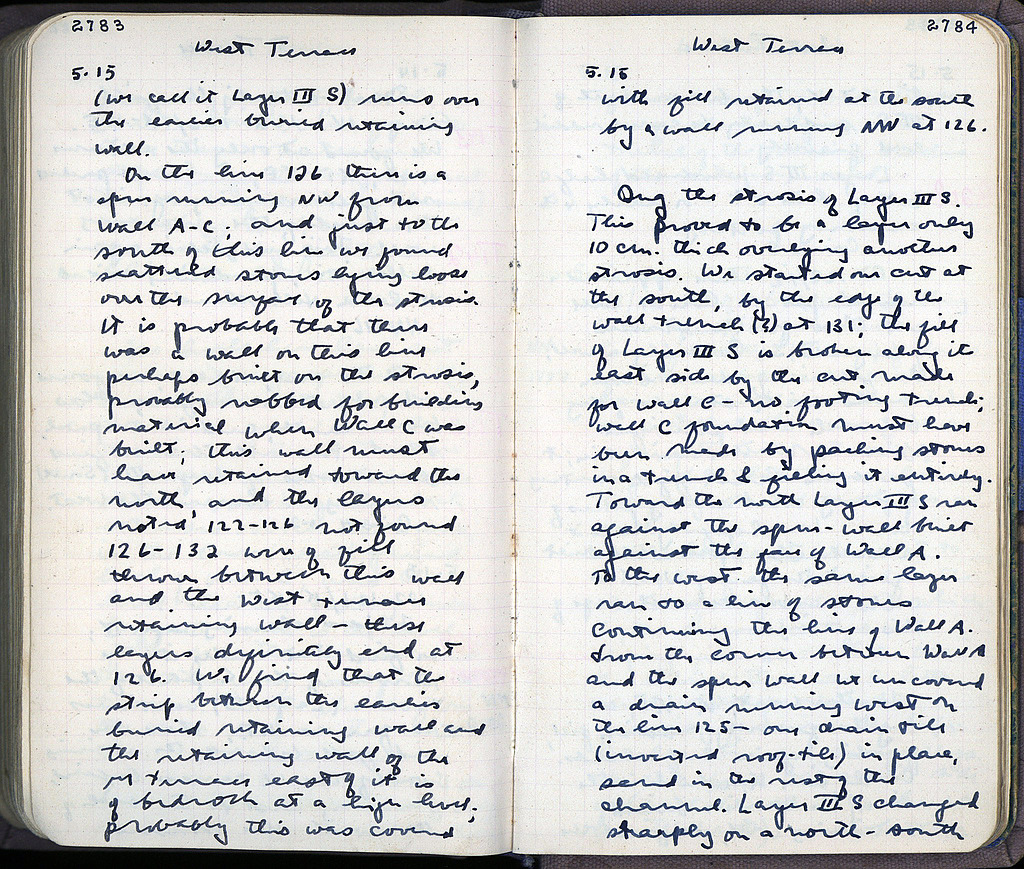 2783
West Terrace
5.15
(we call it Layer III S) runs over
the earlier buried retaining
wall.
On the line 126 there is a
spur running NW from
Wall A-C, and just to the
south of this line we found
scattered stones lying loose
over the surface of the strosis.
It is probable that there
was a wall on this line
perhaps built on the strosis,
probably robbed for building
material when Wall C was
built; this wall must
have retained toward the
north, and the layers
noted, 122-126 not found
126-132 were of fill
thrown between this wall
and the West Terrace
retaining wall - these
layers definitely end at
126. We find that the
strip between the earlier
buried retaining wall and
the retaining wall of the
W Terrace east of it is
of bedrock at a high level;
probably this was covered
2784
West Terrace
5.15
with fill retained at the south
by a wall running NW at 126.
Dug the strosis of Layer III S.
This proved to be a layer only
10 cm. thick overlying another
strosis. We started our cut at
the south, by the edge of the
wall trench (?) at 131; the fill
of Layer III S is broken along it
east side by the cut made
for Wall C - no footing trench;
Wall C foundation must have
been made by packing stones
in a trench & filling it entirely.
Toward the north Layer III S ran
against the spur-wall built
against the face of Wall A.
To the west the same layer
ran to a line of stones
continuing the line of Wall A.
From the corner between Wall A
and the spur wall we uncovered
a drain running west on
the line 125 - one drain tile
(inverted roof-tile) in place,
sand in the rest of the
channel. Layer III S changed
sharply on a north-south